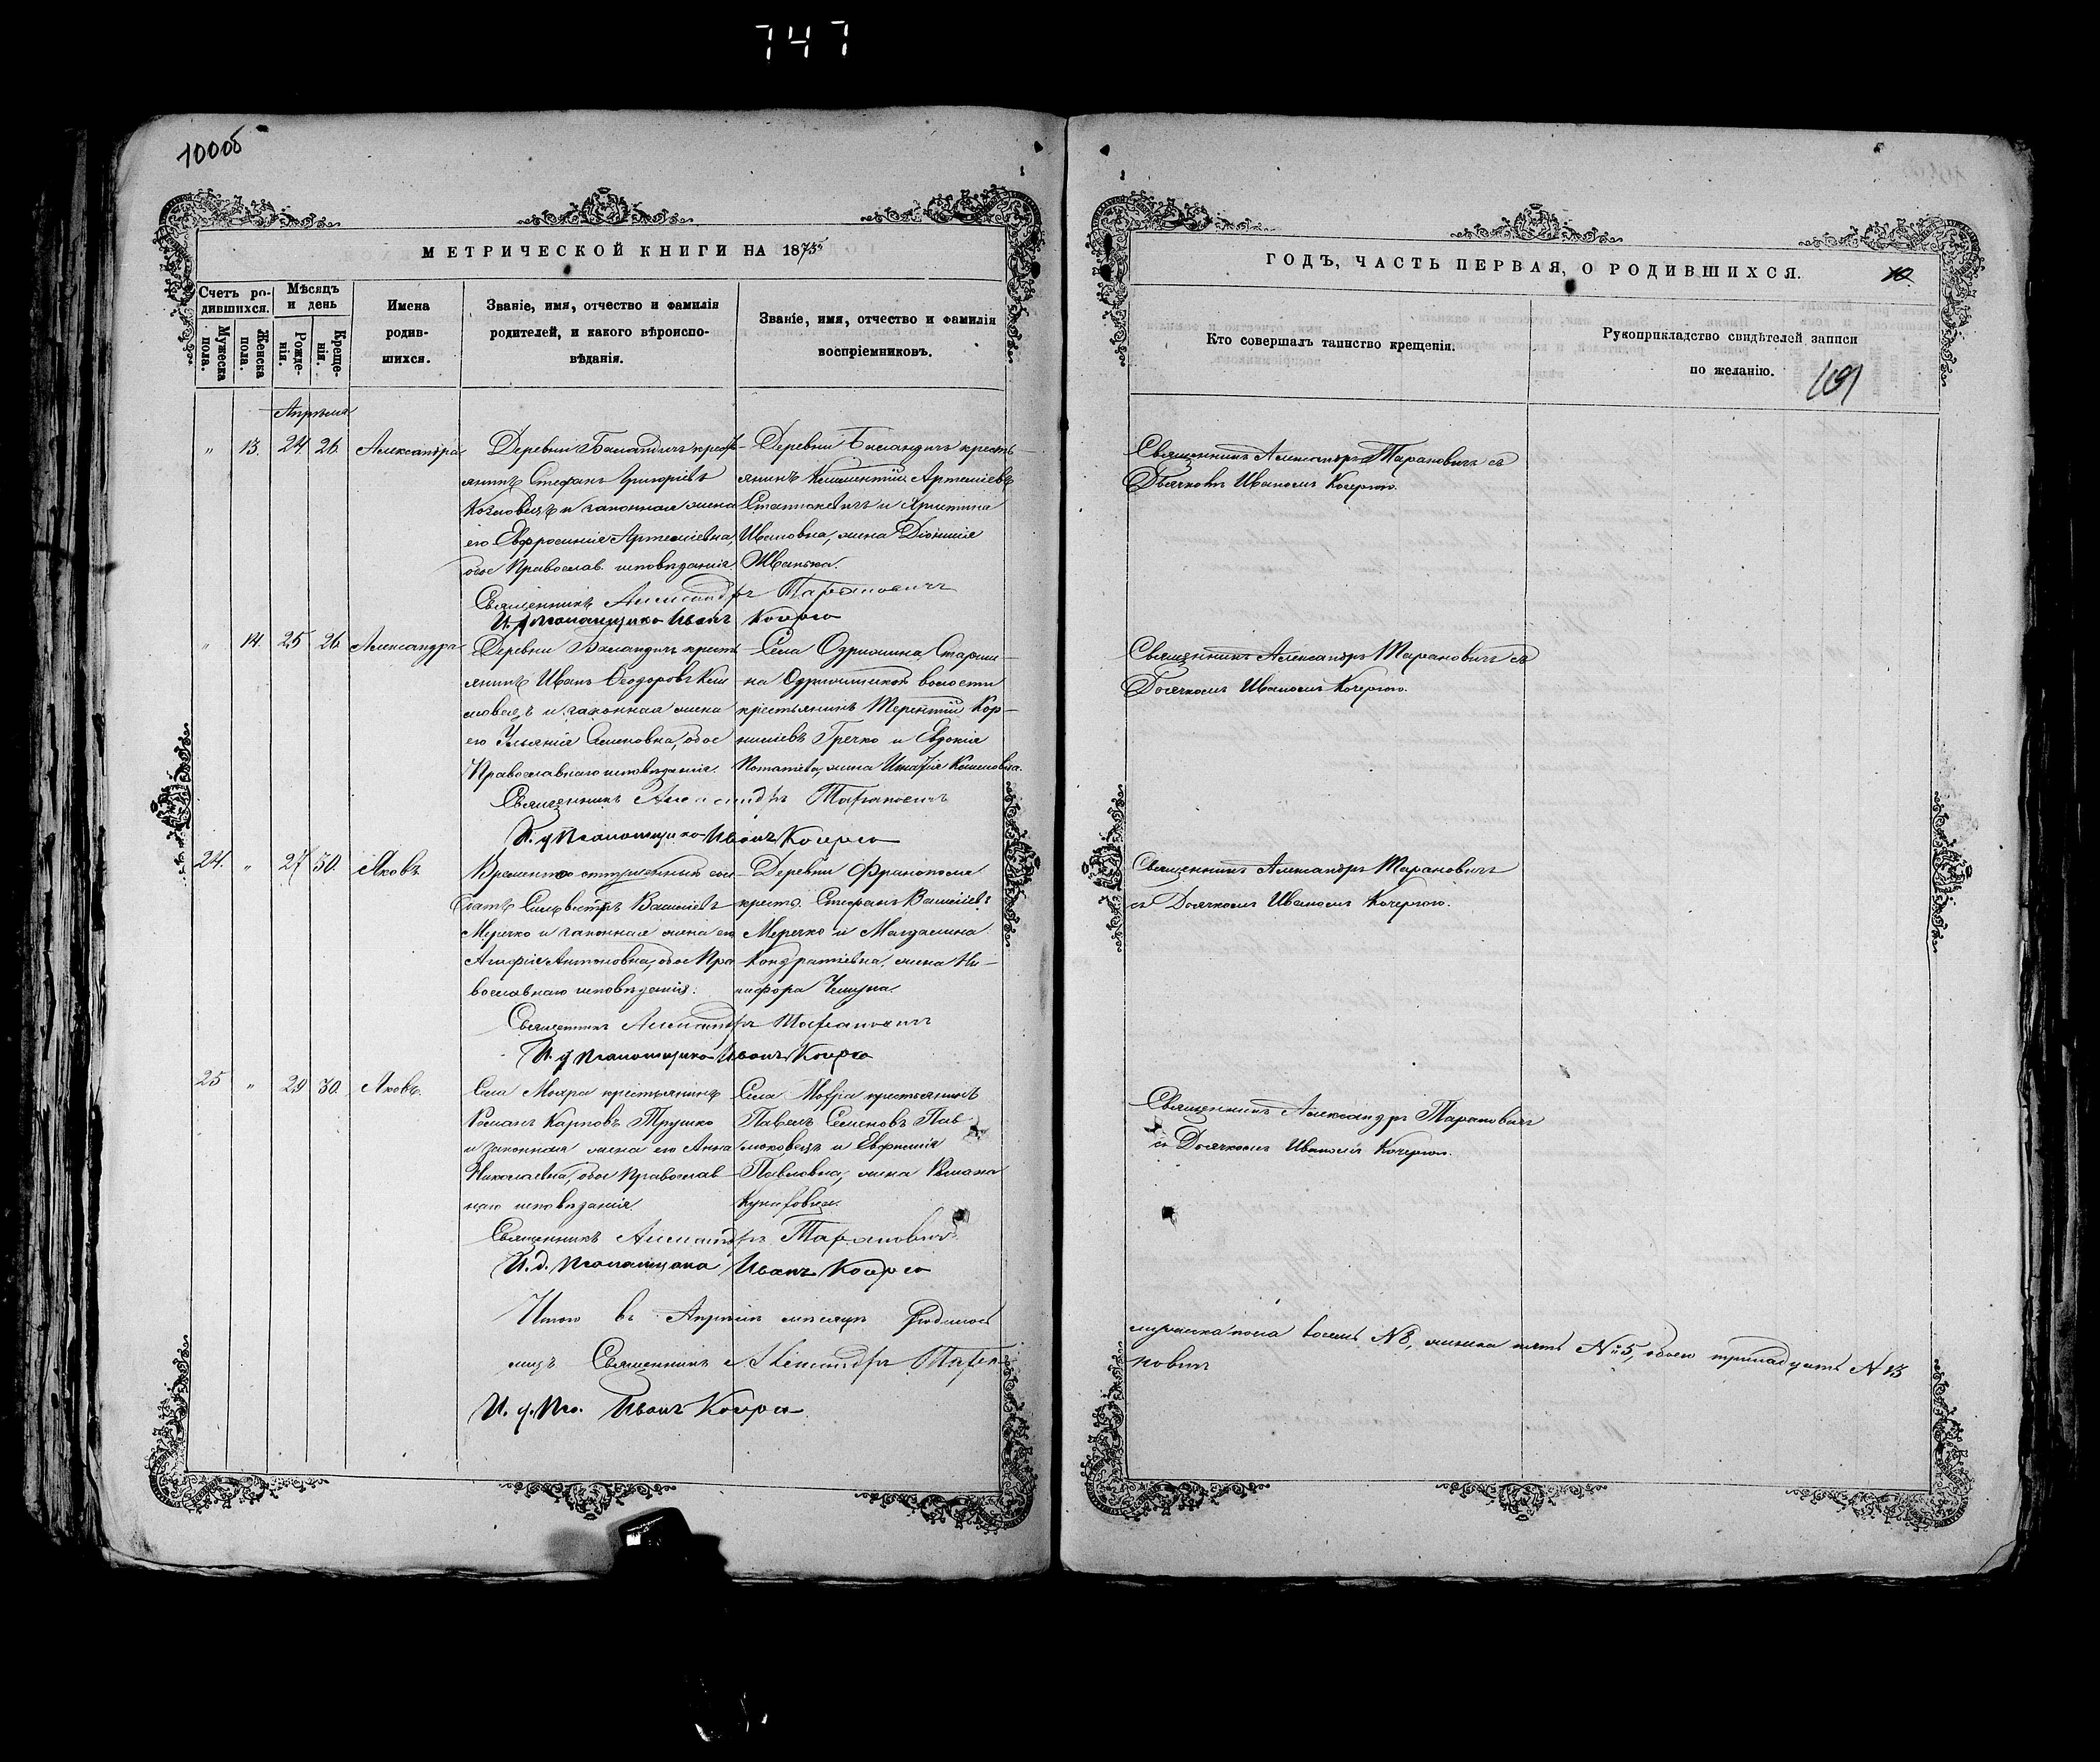 747
100об
МЕТРИЧЕСКОЙ КНИГИ НА 1875
Счетъ ро-
дившихся.
Мужеска пола.
Женска пола.
Мѣсяцъ
и день
Рожде-
нія.
Креще-
нія.
Имена
родив-
шихся.
Званіе, имя, отчество и фамилія
родителей, и какого вѣроиспо-
вѣданія.
Званіе, имя, отчество и фамилія
воспріемниковъ.
Апрѣля
" 13. 24 26. Александра
Деревни Баландичъ крестъ
янинъ Стефанъ Григоріевъ
и законная жена
его Евфросинія Артеміевна,
обое Православ. исповѣданія.
Деревни Баландичъ кресть-
янинъ Климентій Артеміевъ
и Христина
Ивановна, жена Діонисія
Жванька.
Священникъ Александръ Тарановичъ
И. д. псаломщика Иванъ Кочерго
" 14. 25 26. Александра
Деревни Баландичъ кресть
янинъ Иванъ Ѳеодоровъ Кли
мовецъ и законная жена
его Ульянія Семеновна, обое
Православнаго исповѣданія.
Села Одрижина, Старши-
на Одрижинской волости
крестьянинъ Терентій Кор-
ниліевъ Гречко и Евдокія
жена Игнатія Климовца.
Священникъ Александръ Тарановичъ
И. д. Псаломщика Иванъ Кочерго
24. " 27 30. Яковъ
Временно отпускный сол-
датъ Сильвестръ Василіевъ
Меречко и законная жена его
Агафія Антоновна, обое Пра
вославнаго исповѣданія.
Деревни Франополя
крест. Стефанъ Василіевъ
Меречко и Магдалина
Кондратіевна, жена Ни-
кифора
Священникъ Александръ Тарановичъ
И. д. Псаломщика Иванъ Кочерго
25 " 29 30. Яковъ.
Села Мохра крестьянинъ
Романъ Карповъ Трушко
и законная жена его Анна
Николаевна, обое Православ
наго исповѣданія.
Села Мохра крестьянинъ
Павелъ Семеновъ Пав
люковецъ и Евфимія
Павловна, жена Романа
Священникъ Александръ Тарановичъ
И. д. Псаломщика Иванъ Кочерго
Итого въ Апрѣлѣ мѣсяцѣ родилось
Священникъ Александръ Тара-
И. д. Пс. Иванъ Кочерго
ГОДЪ, ЧАСТЬ ПЕРВАЯ, О РОДИВШИХСЯ.
10.
Кто совершалъ таинство крещенія.
Рукоприкладство свидѣтелей записи
по желанію.
101
Священникъ Александръ Тарановичъ съ
Дьячкомъ Иваномъ Кочергою.
Священникъ Александръ Тарановичъ съ
Дьячкомъ Иваномъ Кочергою.
Священникъ Александръ Тарановичъ
съ Дьячкомъ Иваномъ Кочергою.
Священникъ Александръ Тарановичъ
съ Дьячкомъ Иваномъ Кочергою.
мужеска пола восемь №8, женска пять №5, обоего тринадцать №13
новичъ